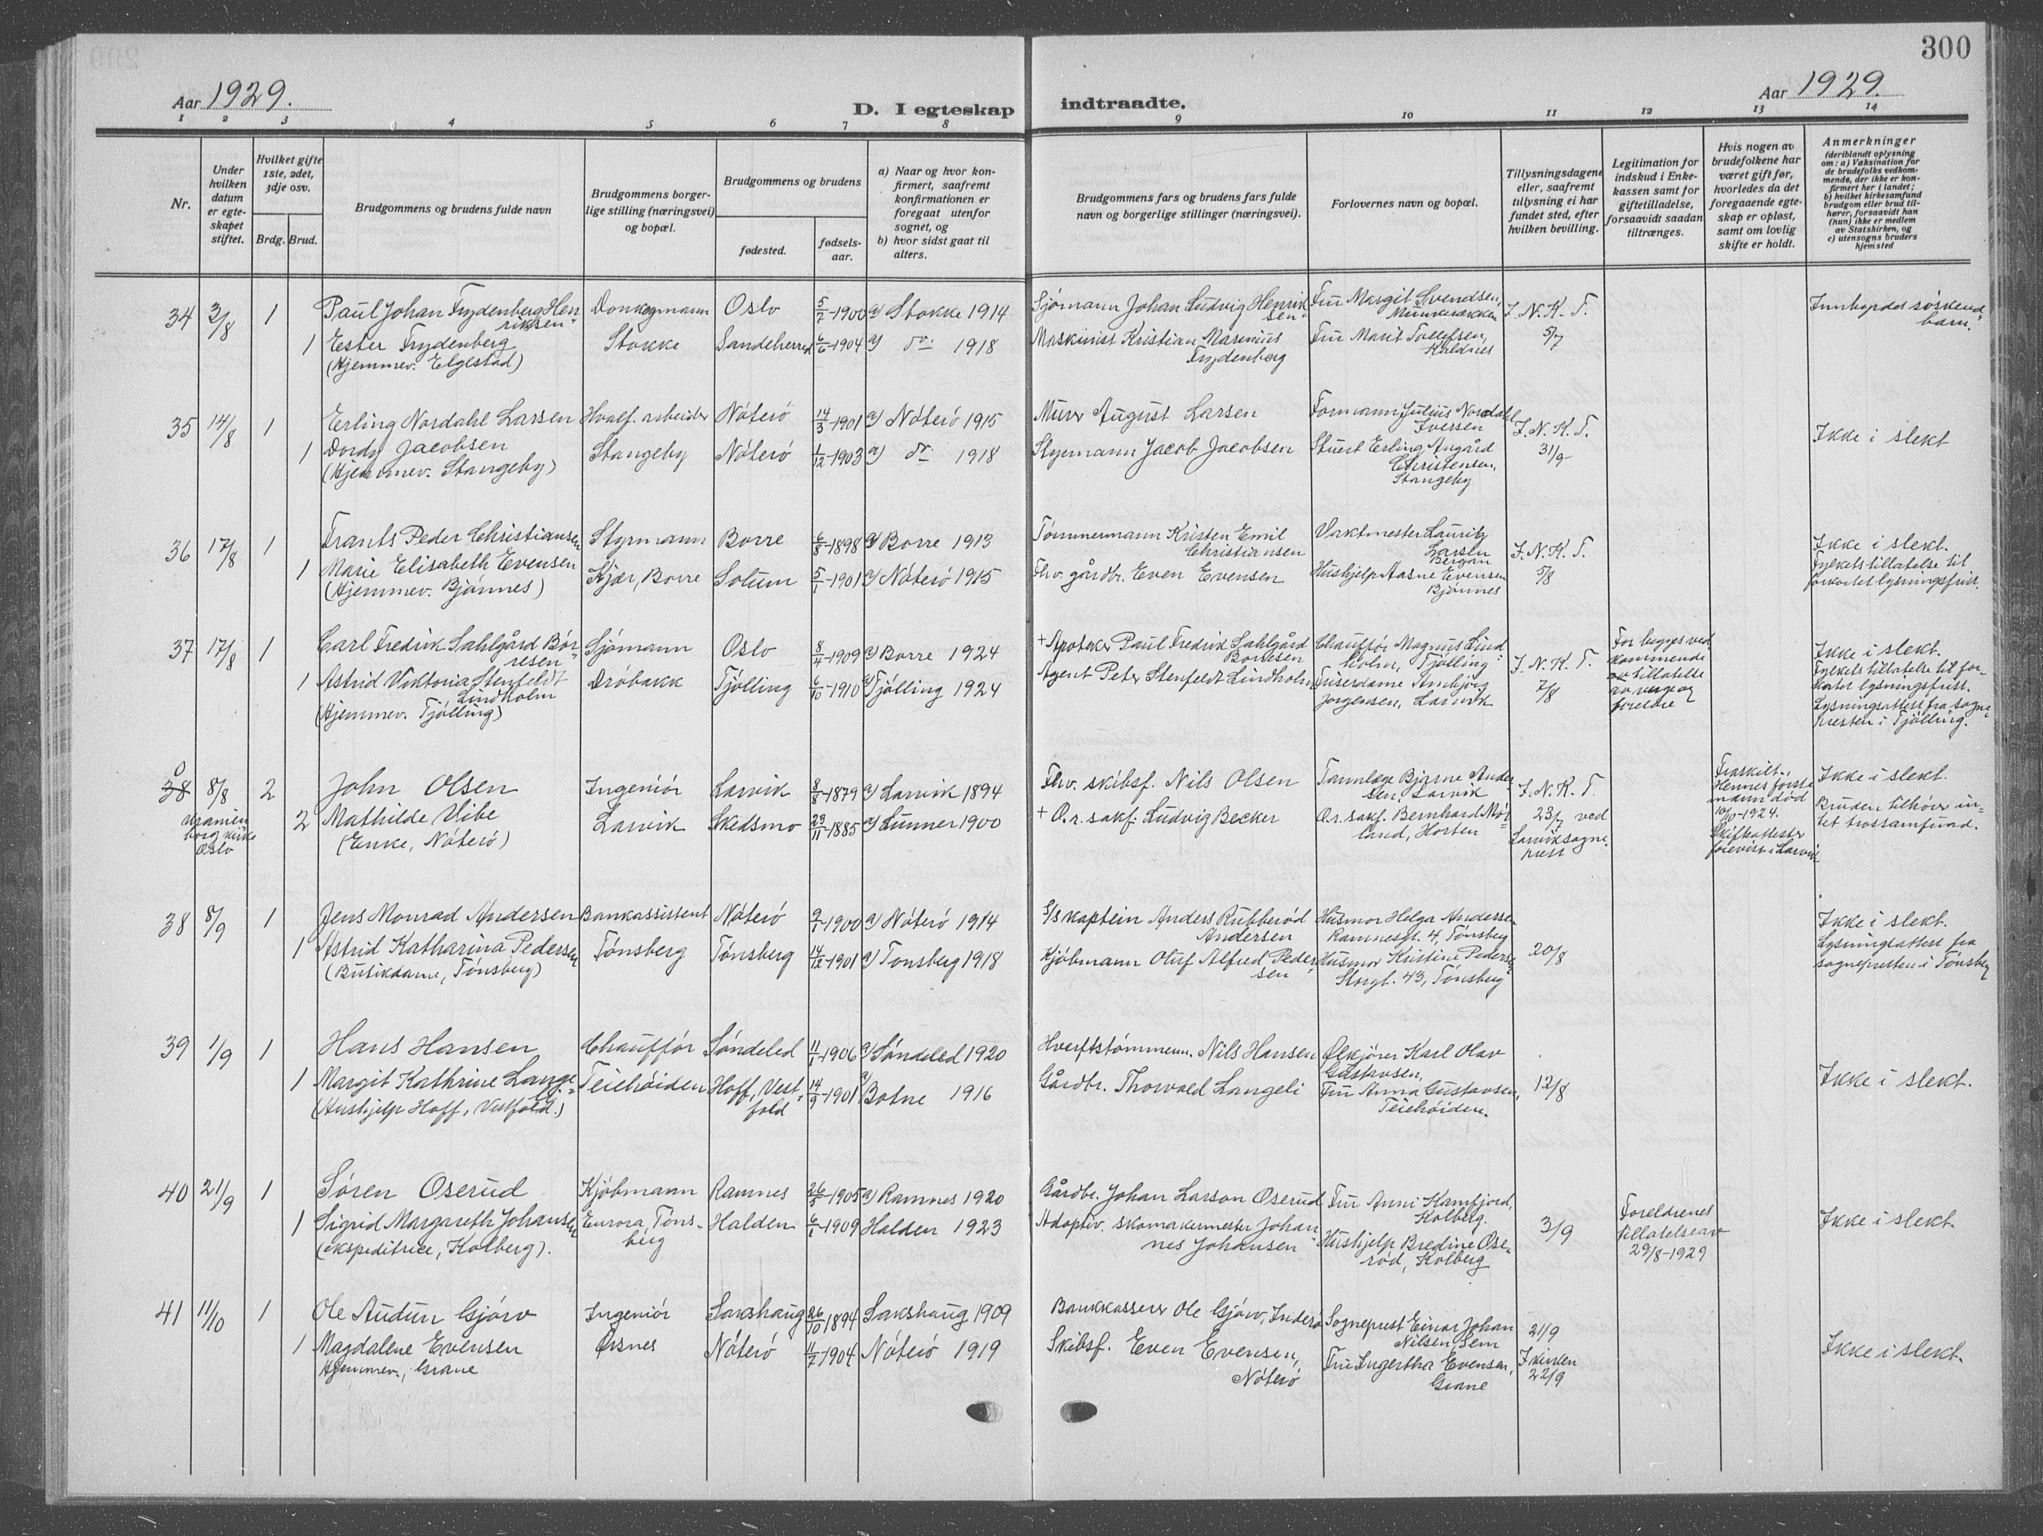 300
Aar 1929.
D. I egteskap indtraadte.
Aar 1929.
1 2 3 4 5 6 7 8 9 10 11 12 13 14
Nr.
Under hvilken datum er egteskapet stiftet.
Hvilket gifte 1ste, 2det, 3dje osv.
Brdg. Brud.
Brudgommens og brudens fulde navn
Brudgommens borgerlige stilling (næringsvei) og bopæl.
Brudgommens og brudens
fødested.
fødselsaar.
a) Naar og hvor konfirmert, saafremt konfirmationen er foregaat utenfor sognet, og
b) hvor sidst gaat til alters.
Brudgommens fars og brudens fars fulde navn og borgerlige stillinger (næringsvei).
Forlovernes navn og bopæl.
Tillysningsdagene eller, saafremt tillysning ei har fundet sted, efter hvilken bevilling.
Legitimation for indskud i Enkekassen samt for giftetilladelse, forsaavidt saadan tiltrænges.
Hvis nogen av brudefolkene har været gift før, hvorledes da det foregaaende egteskap er opløst, samt om lovlig skifte er holdt.
Anmerkninger
(deriblandt oplysning om: a) Vaksination for de brudefolks vedkommende, der ikke er konfirmert her i landet; b) hvilket kirkesamfund brudgom eller brud tilhører, forsaavidt han (hun) ikke er medlem av Statskirken, og c) utensogns bruders hjemsted
34 3/8 1 Paul Johan Frydenberg Henriksen Donkeymann Oslo 5/7-1900 a) Stokke 1914 Sjømann Johan Ludvig Henriksen Fru Margit Svendsen, I. N. K. T. Innbyrdes søskendbarn.
1 Ester Frydenberg Stokke Sandeherred 6/6-1904 a) do 1918 Maskinist Kristian Marenius Frydenberg Fru Marit Tollefsen, Kaldnes 5/7
(Hjemmev. Elgestad)
35 14/8 1 Erling Nordahl Larsen Hvalf. arbeider Nøterø 14/3-1901 a) Nøterø 1915 Murer August Larsen Formann Julius Nordahl Iversen I. N. K. T. Ikke i slekt
1 Dordy Jacobsen Stangeby Nøterø 1/12-1903 a) do 1918 Styrmann Jacob Jacobsen Stuert Erling Augård Christensen, Stangeby 31/9
(Hjemmev. Stangeby)
36 17/8 1 Frants Peder Christiansen Styrmann Borre 6/8-1898 a) Borre 1913 Tømmermann Kristen Emil Christiansen Vaktmester Lauritz Larsen Bergan I. N. K. T. Ikke i slekt.
1 Marie Elisabeth Evensen Kjær, Borre Solum 5/1-1901 a) Nøterø 1915 Fhv. gårdbr. Even Evensen Hushjelp Aasne Evensen Bjønnes 5/8 Fylkets tillatelse til forkortet lysningsfrist.
(Hjemmev. Bjønnes)
37 17/8 1 Carl Fredrik Sahlgård Børresen Sjømann Oslo 8/4-1909 a) Borre 1924 + Apoteker Paul Fredrik Sahlgård Borresen Chauffør Magnus Lindholm, Tjølling I. N. K. T. For begges vedkommende tillatelse av verge og foreldre Ikke i slekt.
1 Astrid Viktoria Stenfeldt Lindholm Drøbakk Tjølling 6/10-1910 a) Tjølling 1924 Agent Peter Stenfeldt Lindholm Friserdame Arnbjørg Jørgensen, Larvik 7/8 Fylkets tillatelse til forkortet lysningsfrist. Lysningsattest fra sognepresten i Tjølling.
(Hjemmev. Tjølling)
0
38 8/8 2 John Olsen Ingeniør Larvik 8/8-1879 a) Larvik 1894 Fhv. skibsf. Nils Olsen Tannlæge Bjarne Andersen, Larvik I. N. K. T. Fraskilt. Hennes første mann død 10/10-1924. Skifteattester forevist i Larvik Ikke i slekt.
Uranienborg kirke Oslo 2 Mathilde Vibe Larvik Skedsmo 23/11-1885 a) Lunner 1900 + O.r.sakf. Ludvig Becker O.r.sakf. Bernhard Møland, Horten 23/7 ved Larvik sogneprest Bruden tilhører intet trossamfund.
(Enke, Nøterø)
38 8/9 1 Jens Monrad Andersen Bankassistent Nøterø 2/1-1900 a) Nøterø 1914 S/s kaptein Anders Rubberød Andersen Husmor Helga Andersen Ramnesgt. 4, Tønsberg Ikke i slekt.
1 Astrid Katharina Pedersen Tønsberg Tønsberg 14/12-1901 a) Tønsberg 1918 Kjøbmann Oluf Alfred Pedersen Husmor Kristine Pedersen Storgt. 43, Tønsberg 20/8 Lysningsattest fra sognepresten i Tønsberg
(Butikdame, Tønsberg)
39 1/9 1 Hans Hansen Chauffør Søndeled 11/1-1906 a) Søndeled 1920 Hverftstømmerm. Nils Hansen Ølkjører Karl Olav Gustavsen,
1 Margit Kathrine Langeli Teiehøiden Hoff, Vestfold 14/9-1901 a) Botne 1916 Gårdbr. Thorvald Langeli Fru Anna Gustavsen, Teiehøiden. 12/8 Ikke i slekt.
(Hushjelp Hoff, Vestfold.)
40 21/9 1 Søren Oserud Kjøbmann Ramnes 26/5-1905 a) Ramnes 1920 Gårdbr. Johan Larson Oserud Fru Anni Kamfjord, Kolberg. Foreldrenes tillatelse av 29/8-1929
1 Sigrid Margareth Johansen Eurora, Tønsberg Halden 6/1-1909 Halden 1923 Adoptiv. skomakermester Johannes Johansen Hushjelp Bredine Oserød, Kolberg 3/9 Ikke i slekt.
(ekspeditrice, Kolberg).
41 11/10 1 Ole Audun Gjørv Ingeniør Sakshaug 26/10 1894 Sakshaug 1909 Bankkasserer Ole Gjørv, Inderø Sogneprest Einar Johan Nilsen, Sem 21/9
1 Magdalene Evensen Ørsnes Nøterø 11/7-1904 Nøterø 1919 Skibsf. Even Evensen, Nøterø Fru Ingertha Evensen, Grane I kirken 22/9 Ikke i slekt.
Hjemmev., Grane